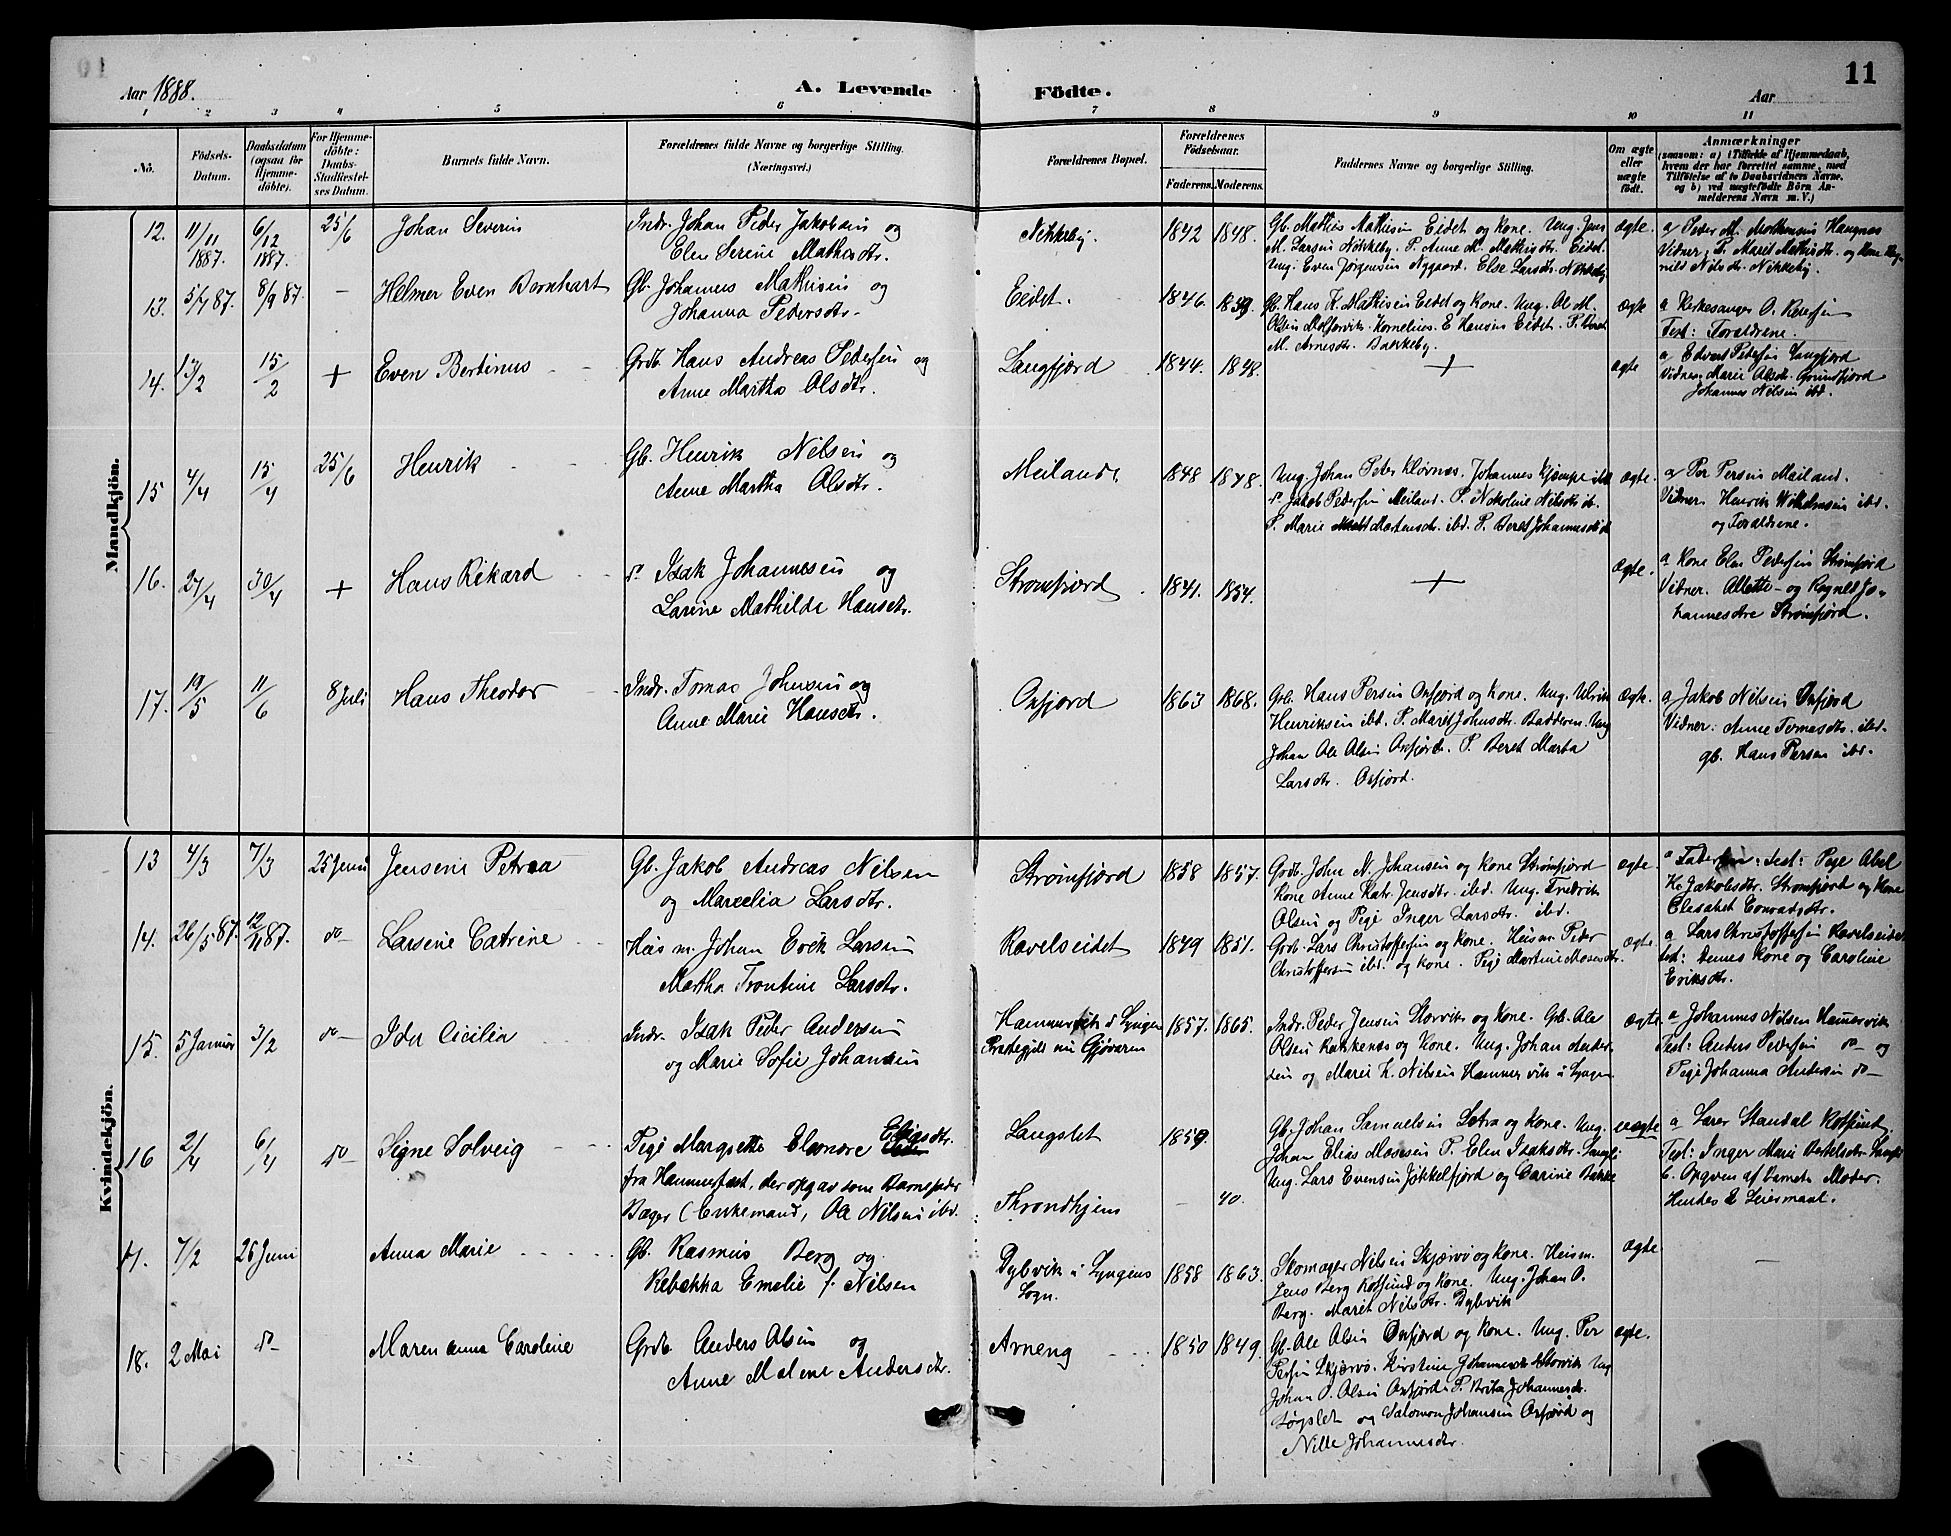 Aar 1888.
A. Levende Födte.
Aar
11
1 2 3 4 5 6 7 8 9 10 11
No.
Födsels-Datum.
Daabsdatum (ogsaa for Hjemmedöbte).
For Hjemmedöbte: Daabs-Stadfæstelses Datum.
Barnets fulde Navn.
Forældrenes fulde Navne og borgerlige Stilling. (Næringsvei.)
Forældrenes Bopæl.
Forældrenes Födselsaar.
Faderens. Moderens.
Faddernes Navne og borgerlige Stilling.
Om ægte eller uægte födt.
Anmærkninger
(saasom: a) i Tilfælde af Hjemmedaab, hvem der har forrettet samme, med Tilföielse af to Daabsvidners Navne, og b) ved uægtefödte Börn Anmelderens Navn m. V.)
Mandkjön.
12. 11/11 1887. 6/12 1887. 25/6 Johan Severin
Indr. Johan Peder Jakobsen og
Elen Serine Mathisdtr.
Nikkeby. 1842 1848.
Gb. Mathis Mathisen Eidet og Kone. Ung. Jens
M. Larsen Nikkeby. P. Anne M. Mathisdtr. Eidet.
Ung. Even Jørgensen Nygaard. Else Larsdtr. Nikkeby
ægte.
a Peder M. Mathisen Haugnes
Vidner: P. Maret Mathisdtr. og Kone
Nilsdtr. Nikkeby.
13. 5/7 87. 8/9 87. - Helmer Even Bernhart
Gb. Johannes Mathisen og
Johanna Pedersdtr.
Eidet. 1846. 1839.
Gb. Hans K. Mathisen Eidet og Kone. Ung. Ole M.
Olsen Molfarvik. Kornelius E Hansen Eidet. P. Beret
M. Arnesdtr. Bakkeby.
ægte
a Kirkesanger O.
Test: Forældrene.
14. 13/2 15/2 + Even Bertinus
Grdb. Hans Andreas Pedersen og
Anne Martha Olsdtr.
Langfjord 1844. 1848. + ægte
a Edvart Pedersen Langfjord
Vidner. Marie Olsdtr. Grundfjord
Johannes Nilsen ibd.
15 4/4 15/4 25/6 Henrik
Gb. Henrik Nilsen og
Anne Martha Olsdtr.
Meiland. 1848 1848.
Ung. Johan Peter Klovnes. Johannes Kjempe ibd
do Jakob Pedersen Meiland. P. Nikoline Nilsdtr ib.
P. Marie Mortensdtr. ibd. P. Beret Johannesdtr ib
ægte.
a Per Persen Meiland.
Vidner. Henrik Wilhelmsen ibd.
og Forældrene.
16. 27/4 30/4 + Hans Rikard
do Isak Johannesen og
Larine Mathilde Hansdtr.
Strømfjord. 1841. 1854. + ægte.
a Kone Elen Pedersen Strømfjord
Vidner. Allette - og Ragnild Jo-
hannesdtre Strømfjord.
17. 19/5 11/6 8 Juli Hans Theodor
Indr. Tomas Johnsen og
Anne Marie Hansdtr.
Oxfjord 1863 1868.
Grb. Hans Persen Oxfjord og Kone. Ung. Ulrik
Henriksen ibd. P. Maret Johnsdtr. Badderen. Ung
Johan Ole Olsen Oxfjord. P. Beret Marta
Larsdtr. Oxfjord.
ægte.
a Jakob Nilsen Oxfjord
Vidner: Anne Tomasdtr. ibd.
gb. Hans Persen ibd.
Kvindekjön.
13 4/3 7/3 25 Juni Jensene Petrea
Gb. Jakob Andreas Nilsen
og Marcelia Larsdtr.
Strømfjord 1858 1857.
Grdb. John N. Johansen og Kone Strømfjord
Kone Anne Katr. Jensdtr. ibd. Ung. Fredrik
Olsen og Pige Inger Larsdtr. ibd.
ægte
a Faderen: Test: Pige Abel
K. Jakobsdtr. Strømfjord og Kone
Elisabet Conradsdtr.
14. 26/5 87. 12/11 87. do- Larsine Catrine
Huusm. Johan Erik Larsen
Martha Frontine Larsdtr.
Ravelseidet 1849 1851.
Grdb. Lars Christoffersen og Kone. Huusm Peder
Christoffersen ibd. og Kone. Pige Martine Mosesdtr.
ægte.
a Lars Christoffersen Ravelseidet
test: Dennes Kone og Caroline
Eriksdtr.
15. 5 Januar 3/2 do- Ida Cicilia
Indr. Isak Peder Andersen
og Marie Sofie Johansen
Hammervik i Lyngen
Præstegjeld nu Gjøvaren
1857. 1865.
Indr. Peder Jensen Storvik og Kone. Gb. Ole
Olsen Kakkenæs og Kone. Ung. Johan Ander-
sen og Marie K. Nilsen Hammervik i Lyngen
ægte
a Johannes Nilsen Hamervik
Test: Anders Pedersen do- og
Pige Johanna Andersen do-
16 2/4 6/4 do- Signe Solveig
Pige Margrette Elenore Eliasdtr.
fra Hammerfest, der opgav som Barnefader
Bager (Enkemand) Ole Nilsen ibd.
Langslet 1859.
Throndhjem - 40.
Gb. Johan Samuelsen Sotra og Kone. Ung.
Johan Elias Mosesen P. Elen Isaksdtr. Langsl.
Ung. Lars Evensen Jøkkelfjord og Carine Bakke
uægte
a Lærer Standal Rotsund.
Test: Inger Marie Bertelsdtr. Langsl
b. Opgiven af Barnets Moder.
Hendes 2 Leiermaal.
17. 7/2 26 Juni Anna Marie
Gb. Rasmus Berg og
Rebekka Emelie f. Nilsen
Dybvik i Lyngens
Sogn.
1858 1863.
Skomager Nilsen Skjærvø og Kone. Huusm.
Jens Berg Rotsund og Kone. Ung. Johan O.
Berg. Maret Nilsdtr. Dybvik
ægte. -
18. 2 Mai do- Maren Anna Caroline
Grdb. Anders Olsen og
Anne Malene Andersdtr.
Arneng 1850 1849.
Gb. Ole Olsen Oxfjord og Kone. Ung. Per
Persen Skjærvø. Kirstine Johannesdtr Storvik Ung
Johan P. Olsen Oxfjord. P. Brita Johannesdr.
Løgslet og Salomon Johansen Oxfjord og
Nille Johannesdtr.
ægte.